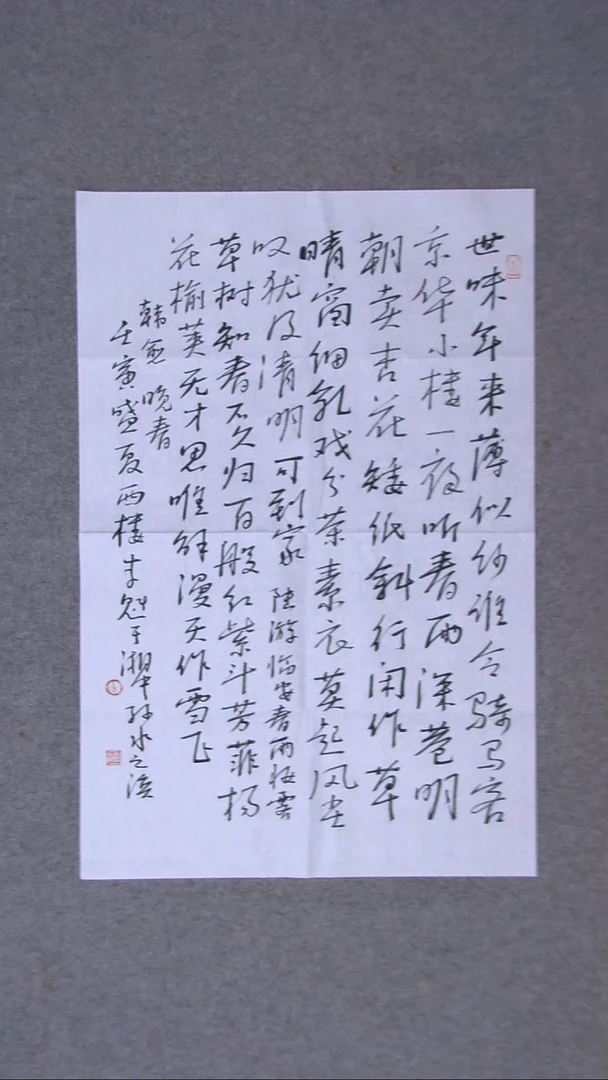 世味年来薄似纱谁令骑马客
京华小楼一夜听春雨深巷明
朝卖杏花矮纸斜行闲作草
晴窗细乳戏分茶素衣莫起风尘
叹犹及清明可到家 陆游临安春雨初霁
草树知春不久归百般红紫斗芳菲杨
花榆荚无才思唯解漫天作雪飞
韩愈 晚春
壬寅盛夏西楼